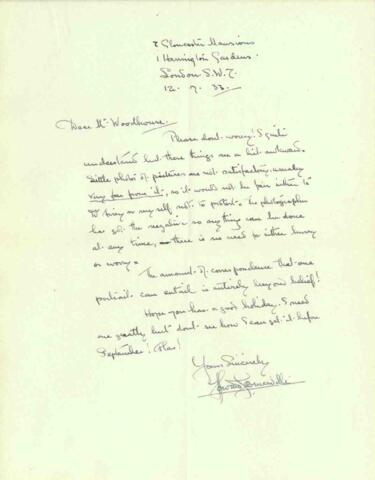 7 Gloucester Mansions
1 Harrington Gardens.
London S.W.7.
12. 7. 33.
Dear Mr Woodhouse.
Please don't worry! I quite
understand but these things are a bit awkward.
Little photos of pictures are not satisfactory, usually
very far from it, so it would not be fair either to
or my self not to protest. The photographer
has got the negative so anything can be done
at any time, so there is no need to either hurry
or worry.
The amount of correspondence that one
portrait can entail is entirely beyond belief!
Hope you have a good holiday. I need
one greatly but don't see how I can get it before
September! Alas!
Yours Sincerely
Howard Somerville